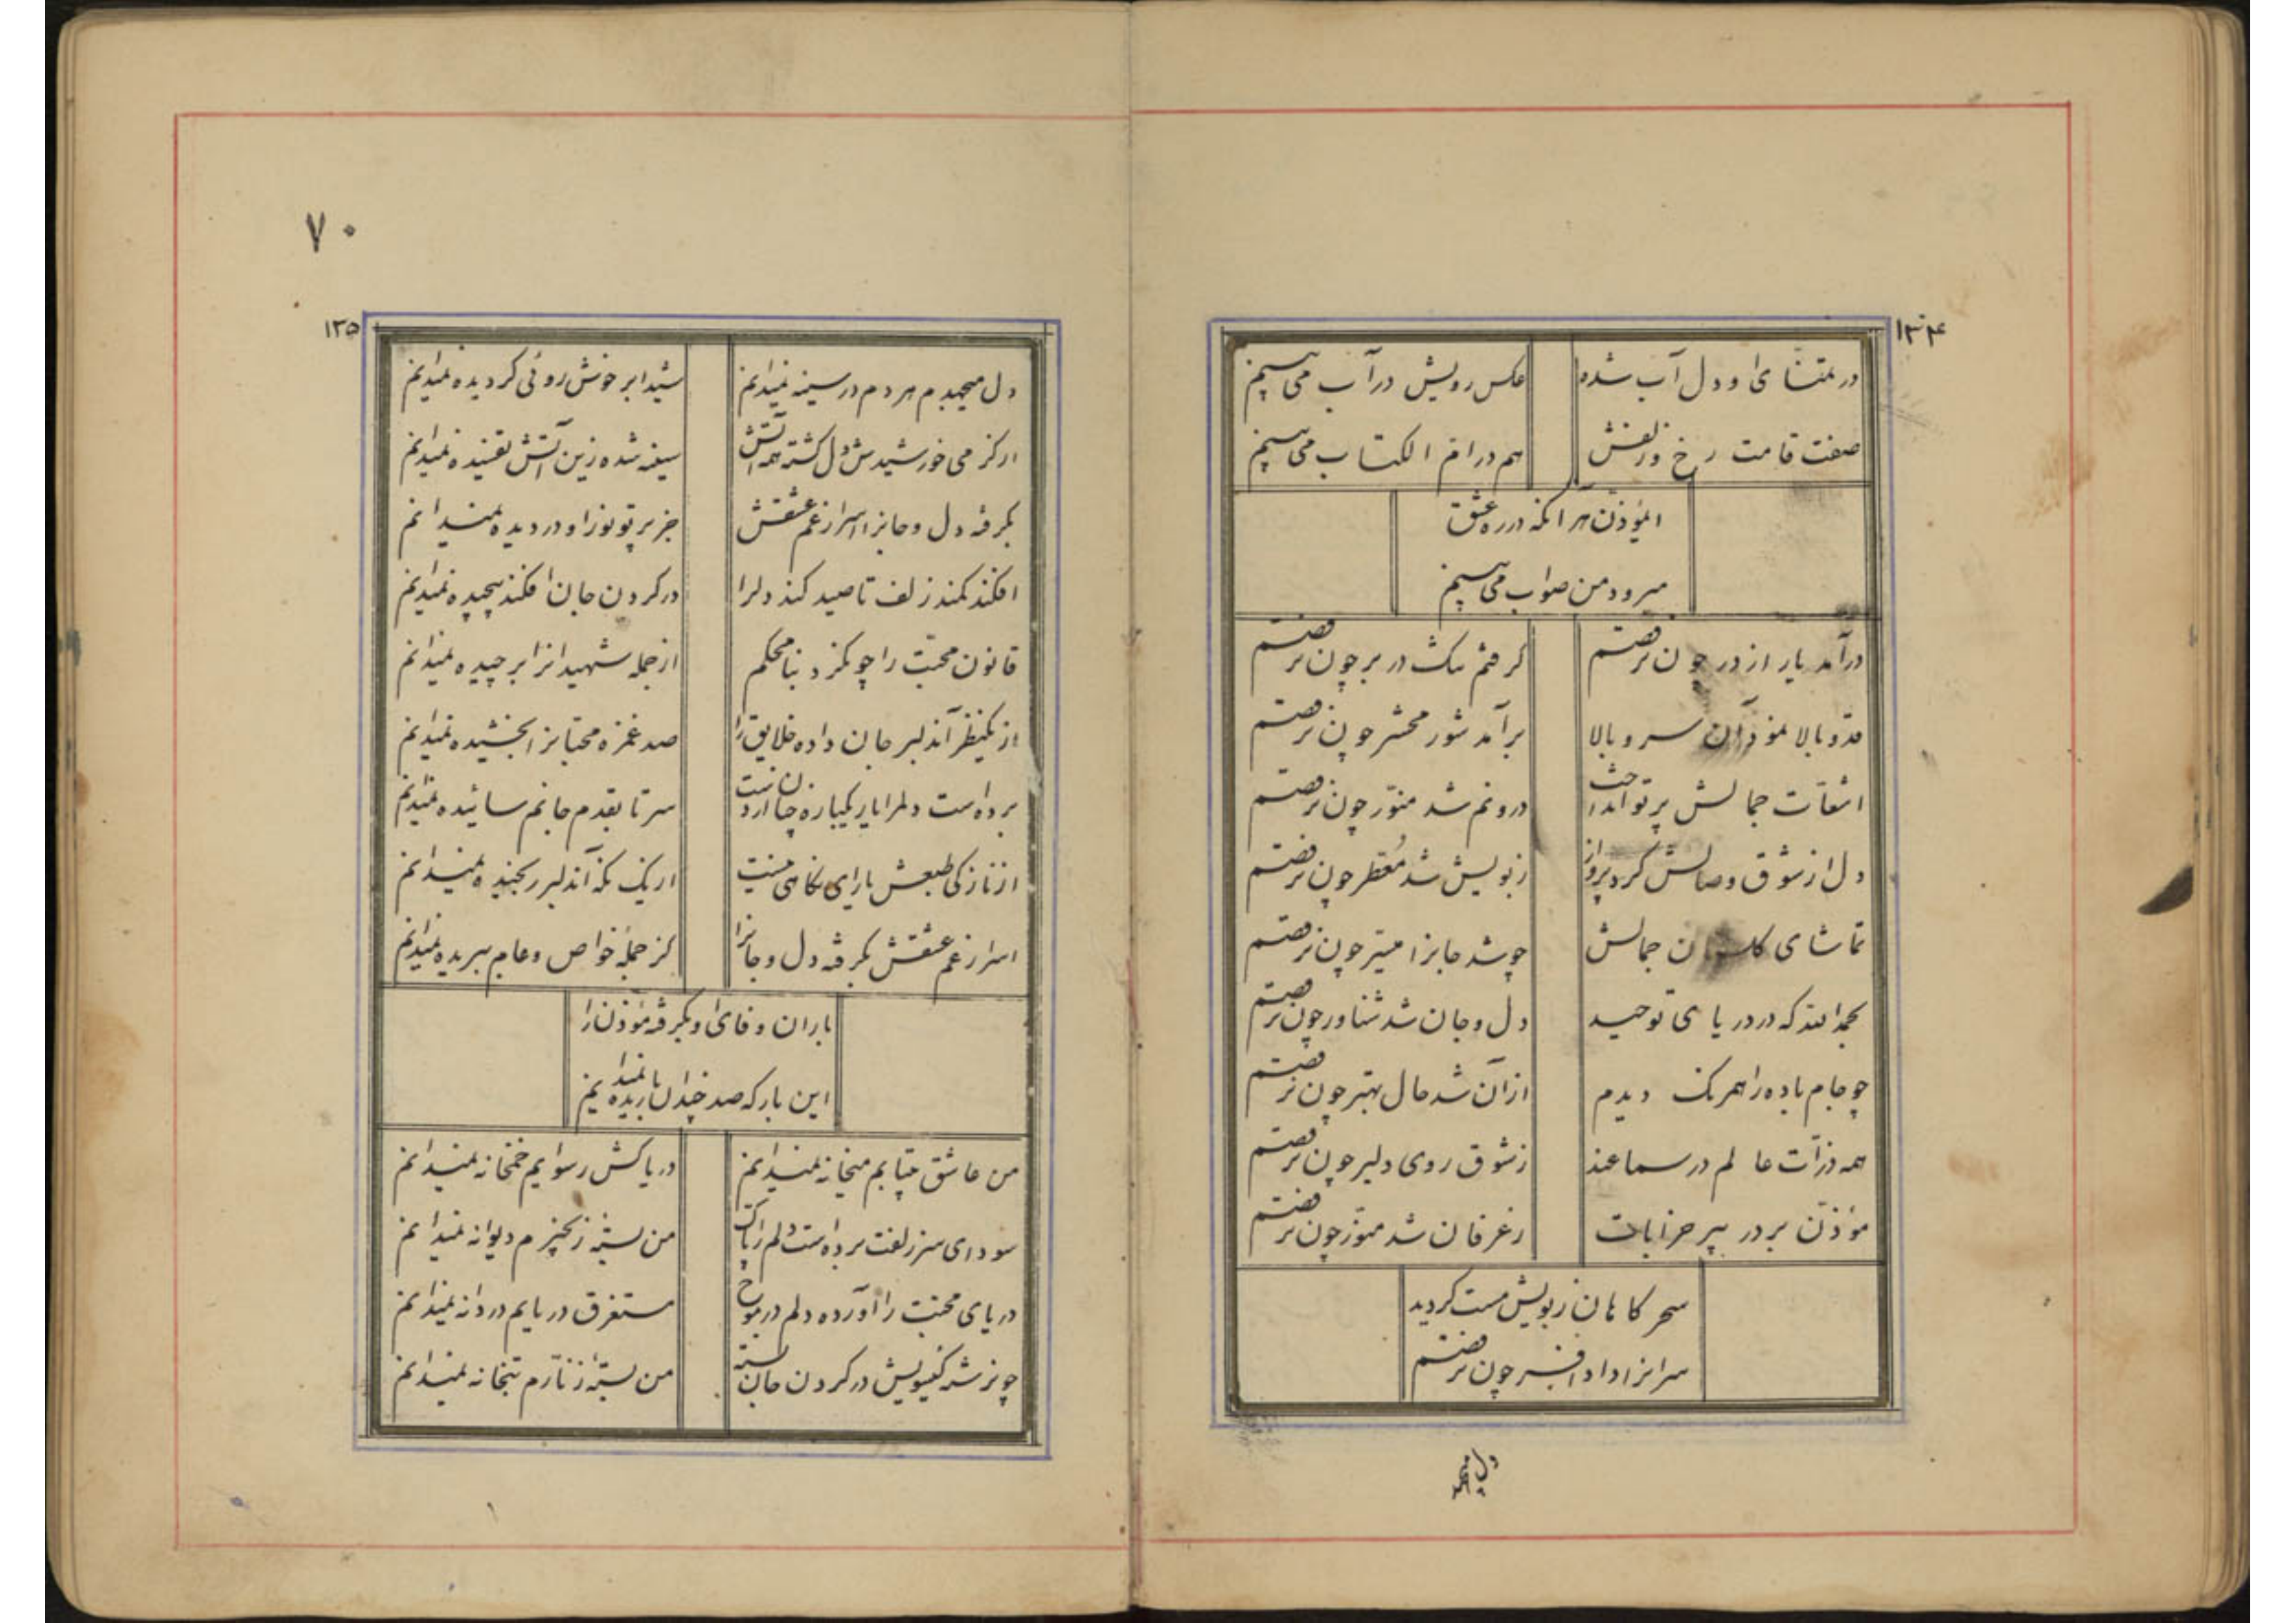 ۱۳۴
در تمنای او دل آب شده
عکس رویش در آب می بینم
صفت قامت رخ و زلفش
هم در ام الکتاب می بینم
ای مؤذن هر آنکه در ره عشق
میرود من صواب می بینم
درآمد یار از در چون نرقصم
گرفتم تنگ در بر چون نرقصم
قد و بالا نمود آن سرو بالا
برآمد شور محشر چون نرقصم
اشعّات جمالش پرتو انداخت
درونم شد منوّر چون نرقصم
دل از شوق وصالش کرد پرواز
ز بویش شد مُعطر چون نرقصم
تماشای گلستان جمالش
چو شد جانرا میسّر چون نرقصم
بحمدالله که در دریای توحید
دل و جان شد شناور چون نرقصم
چو جام باده را همرنگ دیدم
از آن شد حال بهتر چون نرقصم
همه ذرّات عالم در سماعند
ز شوق روی دلبر چون نرقصم
مؤذّن بر در پیر خرابات
ز عرفان شد منوّر چون نرقصم
سحرگاهان ز بویش مست گردید
سرانرا داد افسر چون نرقصم
دل میجهدم
۷۰
۱۳۵
دل میجهدم هر دم در سینه نمیدانم
شیدا بر خوش روئی گردیده نمیدانم
از گرمی خورشیدش دل گشته همه آتش
سینه شده زین آتش تفتیده نمیدانم
بگرفته دل و جانرا اسرار غم عشقش
جز پرتو نور او در دیده نمیدانم
افکند کمند زلف تا صید کند دلرا
در گردن جان افکند پیچیده نمیدانم
قانون محبّت را چو نکرد بنا محکم
از جمله شهیدانرا برچیده نمیدانم
از یکنظر آندلبر جان داده خلایق را
صد غمزه محبّانرا بخشیده نمیدانم
برده است دلمرا یار یکباره چنان از دست
سر تا بقدم جانم سائیده نمیدانم
از نازکی طبعش یارای نگاهی نیست
از یک نگه آندلبر رنجیده نمیدانم
اسرار غم عشقش بگرفته دل و جانرا
کز جملهٔ خواص و عام ببریده نمیدانم
باران وفای او بگرفته مؤذن را
این بار که صد چندان باریده نمیدانم
من عاشق بیتابم میخانه نمیدانم
دریاکش رسوایم خمخانه نمیدانم
سودای سر زلفت برده است دلم را پاک
من بستهٔ زنجیرم دیوانه نمیدانم
دریای محبّت را آورده دلم در موج
مستغرق دریایم دردانه نمیدانم
چون رشتهٔ گیسویش در گردن جان بسته
من بستهٔ زنّارم بتخانه نمیدانم